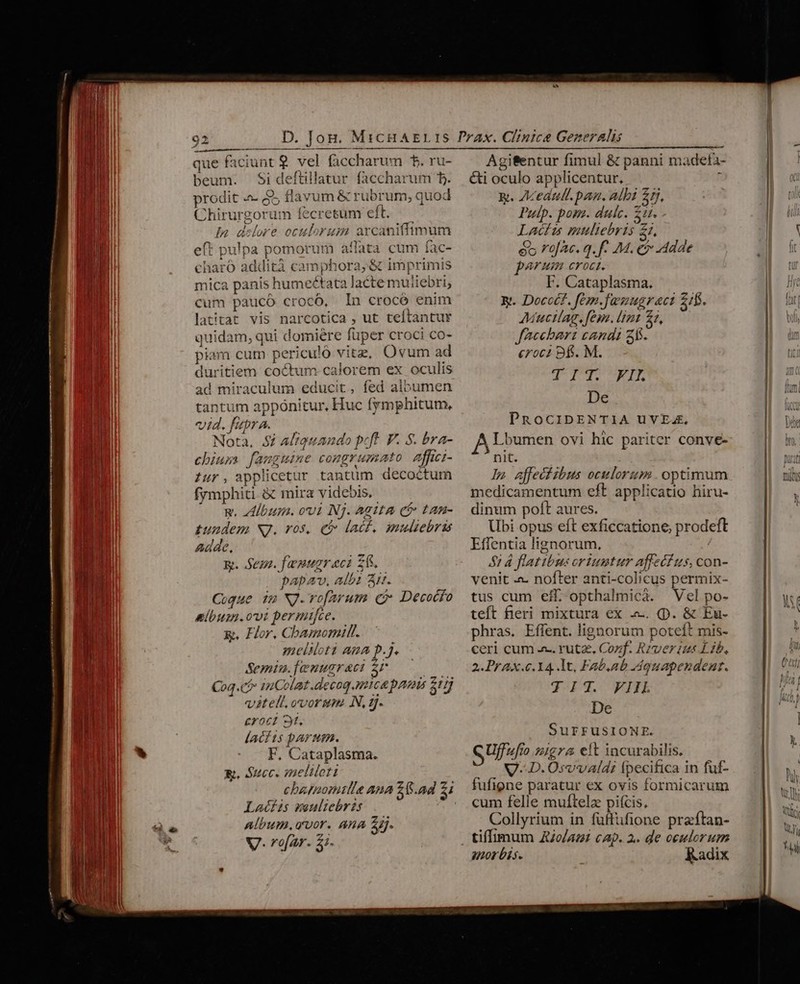 92 D. JOH. MICHAELIS Prax. Clinica Generalis
que faciunt ☿ vel saccharum ♄. ru-
beum. Si destillatur saccharum ♄.
prodit flavum & rubrum, quod
Chirurgorum secretum est.
In dolore oculorum arcanissimum
est pulpa pomorum assata cum sac-
charô additâ camphora, & imprimis
mica panis humectata lacte muliebri,
cum paucô crocô, In crocô enim
latitat vis narcotica, ut testantur
quidam, qui domiêre super croci co-
piam cum periculô vitæ, Ovum ad
duritiem coctum calorem ex oculis
ad miraculum educit, sed albumen
tantum appônitur, Huc symphitum,
vid. supra.
Nota, Si aliquando post V. S. bra-
chium sanguine congrumato affici-
tur, applicetur tantùm decoctum
symphiti & mira videbis.
℞. Album. ovi Nj. agita & tan-
tundem ▽. ros. & lact. muliebris
adde.
℞. Sem. fœnugraci ℥ß.
papav. albi ʒii.
Coque in ▽. rosarum & Decocto
album. ovi permisce.
℞. Flor. Chamomill.
meliloti ana p.j.
Semin. fœnugraci ʒi
Coq. & in Colat. decoq. mica panis ʒiij
vitell. ovorum N. ij.
croci ℈i.
lactis parum.
F. Cataplasma.
℞. Succ. meliloti
chamomilla ana ℥ß. ad ℥i
Lactis muliebris
album. ovor. ana ʒij.
▽. rosar. ℥i.
Agitentur simul & panni madefa-
cti oculo applicentur.
℞. Medull. pan. albi ℥ij.
Pulp. pom. dulc. ℥ii.
Lactis muliebris ℥i,
rosac. q. s. M. & Adde
parum croci.
F. Cataplasma.
℞. Dococt. sem. fœnugraci ℥iß.
Mucilag. sem. lini ℥i,
sacchari candi ʒß.
croci ℈ß. M.
TIT. VII.
De
PROCIDENTIA UVEÆ,
ALbumen ovi hic pariter conve-
nit.
In affectibus oculorum optimum
medicamentum est applicatio hiru-
dinum post aures.
Ubi opus est exsiccatione, prodest
Essentia lignorum.
Si á flatibus oriuntur affectus, con-
venit noster anti-colicus permix-
tus cum ess. opthalmicâ. Vel po-
test fieri mixtura ex & Eu-
phras. Essent. lignorum potest mis-
ceri cum rutæ. Conf. Riverius Lib.
2. Prax. c. 14. It. Fab. ab Aquapendent.
TIT. VIII.
De
SUFFUSIONE.
SUffusio nigra est incurabilis.
▽. D. Osvvaldi specifica in suf-
fusione paratur ex ovis formicarum
cum felle mustelæ piscis.
Collyrium in suffusione præstan-
tissimum Riolani cap. 2. de oculorum
morbis. Radix